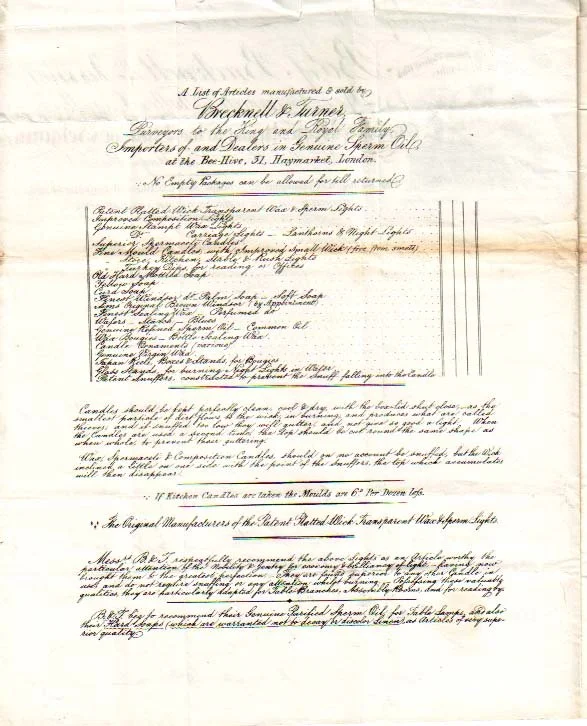 A List of Articles manufactured & sold by
Brecknell & Turner,
Purveyors to the King and Royal Family,
Importers of and Dealers in Genuine Sperm Oil
at the Bee-Hive, 31, Haymarket, London.
No Empty Packages can be allowed for till returned
Patent Platted Wick Transparent Wax & Sperm Lights
Improved Composition Lights
Genuine Stampt Wax Lights
Do Carriage Lights — Lanthorns & Night Lights
Superior Spermaceti Candles
Fine Mould Candles, with Improved Small Wick (free from smoke)
Store, Kitchen, Stable & Rush Lights
Turkey Dips for reading or Offices
Old Hard Mottled Soap
Yellow Soap
Curd Soap
Finest Windsor do Palm Soap — Soft Soap
Original Brown Windsor (by Appointment)
Finest Sealing Wax Perfumed do
Wafers — Starch — Blues
Genuine Refined Sperm Oil — Common Oil
Wax Bougies — Bottle Sealing Wax
Candle Ornaments (various)
Genuine Virgin Wax
Japan Reels, Boxes & Stands for Bougies
Glass Stands, for burning Night Lights in Water
Patent Snuffers, constructed to prevent the Snuff falling into the Candle
Candles should be kept perfectly clean, cool & dry, with the box-lid shut close, as the
smallest particle of dirt flows to the wick, in burning, and produces what are called
thieves, and if snuffed too low they will gutter, and not give so good a light. When
the Candles are used a second time, the top should be cut round the same shape as
when whole, to prevent their guttering.
Wax, Spermaceti & Composition Candles, should on no account be snuffed, but the Wick
inclined a little on one side with the point of the Snuffers, the top which accumulates
will then disappear.
If Kitchen Candles are taken the Moulds are 6d Per Dozen less.
The Original Manufacturers of the Patent Platted Wick Transparent Wax & Sperm Lights
Messrs B. & T. respectfully recommend the above Lights as an Article worthy the
particular attention of the Nobility & Gentry for economy & brilliancy of light, having now
brought them to the greatest perfection. They are found superior to any other Candle in
use, and do not require snuffing or any attention whilst burning. Possessing these valuable
qualities, they are particularly adapted for Table Branches, Assembly Rooms, and for reading by.
B. & T. beg to recommend their Genuine Purified Sperm Oil, for Table Lamps, and also
their Hard Soaps (which are warranted not to decay or discolor Linen) as Articles of very supe-
rior quality.